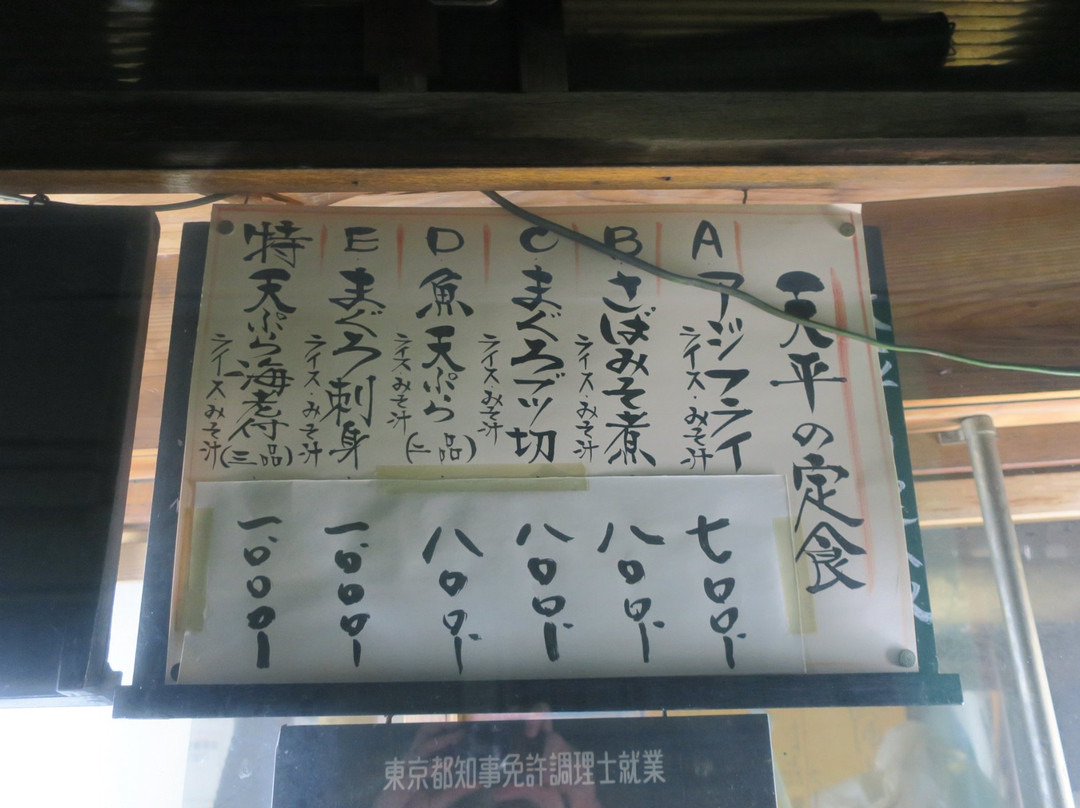 天平の定食
A アジフライ
ライス・みそ汁
七〇〇
B さばみそ煮
ライス・みそ汁
八〇〇
C まぐろブツ切
ライス・みそ汁
八〇〇
D 魚天ぷら(二品)
ライス・みそ汁
八〇〇
E まぐろ刺身
ライス・みそ汁
一、〇〇〇
特 天ぷら海老付(三品)
ライス・みそ汁
一、〇〇〇
東京都知事免許調理士就業